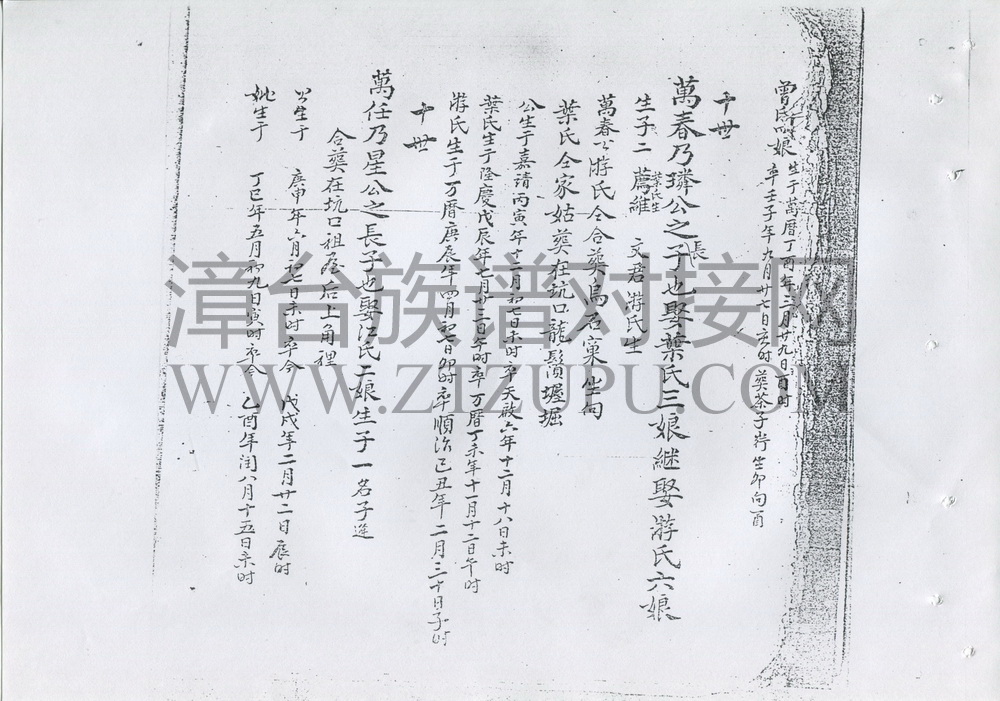 曾氏 娘 生于萬曆丁酉年三月廿九日酉时
卒壬子年九月廿七日亥时 葵茶子 坐卯向酉
十世
萬春乃璘公之長子也娶葉氏三娘継娶游氏六娘
生子二 薦維 葉氏生 文君 游氏生
萬春公游氏仝合葵烏石窠坐向
葉氏仝家姑葵在坑口龍鬚堀
公生于嘉靖丙寅年十二月初七日未时卒天啟六年十二月十八日未时
葉氏生于隆慶戊辰年七月廿二日午时卒万曆丁未年十一月十二日午时
游氏生于万曆庚辰年四月初七日卯时卒順治己丑年二月三十日子时
十世
萬任乃星公之長子也娶江氏二娘生于一名子進
合葵在坑口祖屋后上角裡
公生于 庚申年六月初七日未时 卒今 戊戌年二月廿二日辰时
妣生于 丁巳年五月初九日寅时卒今 乙酉年闰八月十五日未时
漳台族谱对接网
WWW.ZIZUPU.COM